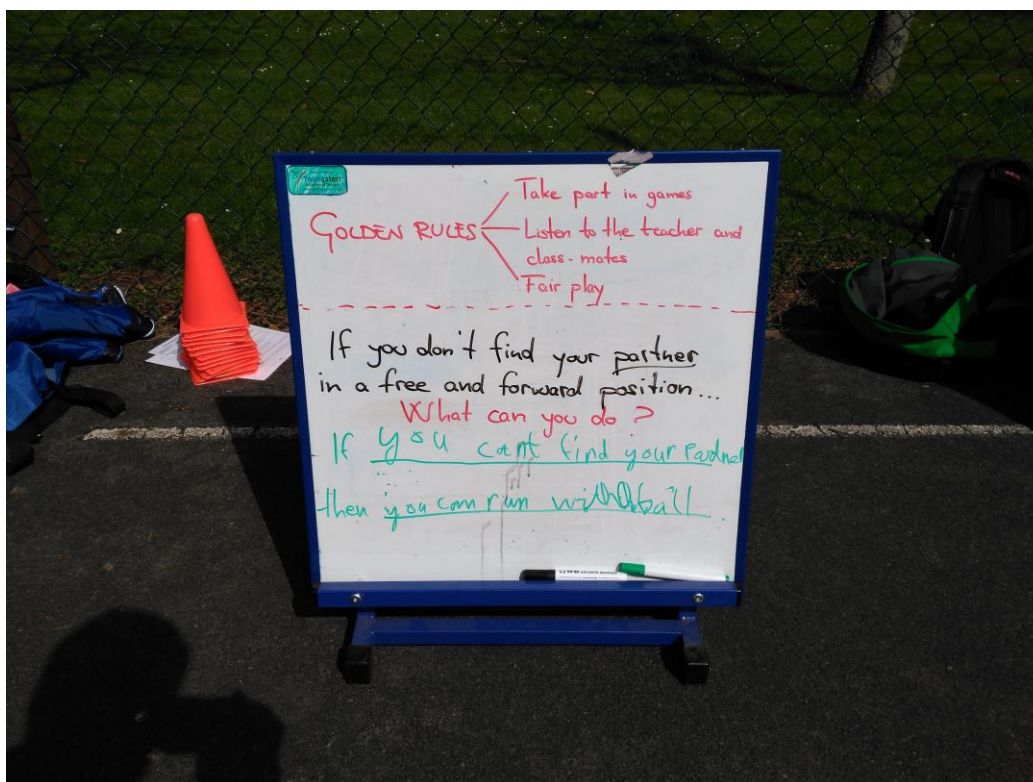 Youngstart
Take part in games
GOLDEN RULES
Listen to the teacher and
class-mates
Fair play
If you don't find your partner
in a free and forward position...
What can you do?
If you cant find your Partner
then you can run with ball